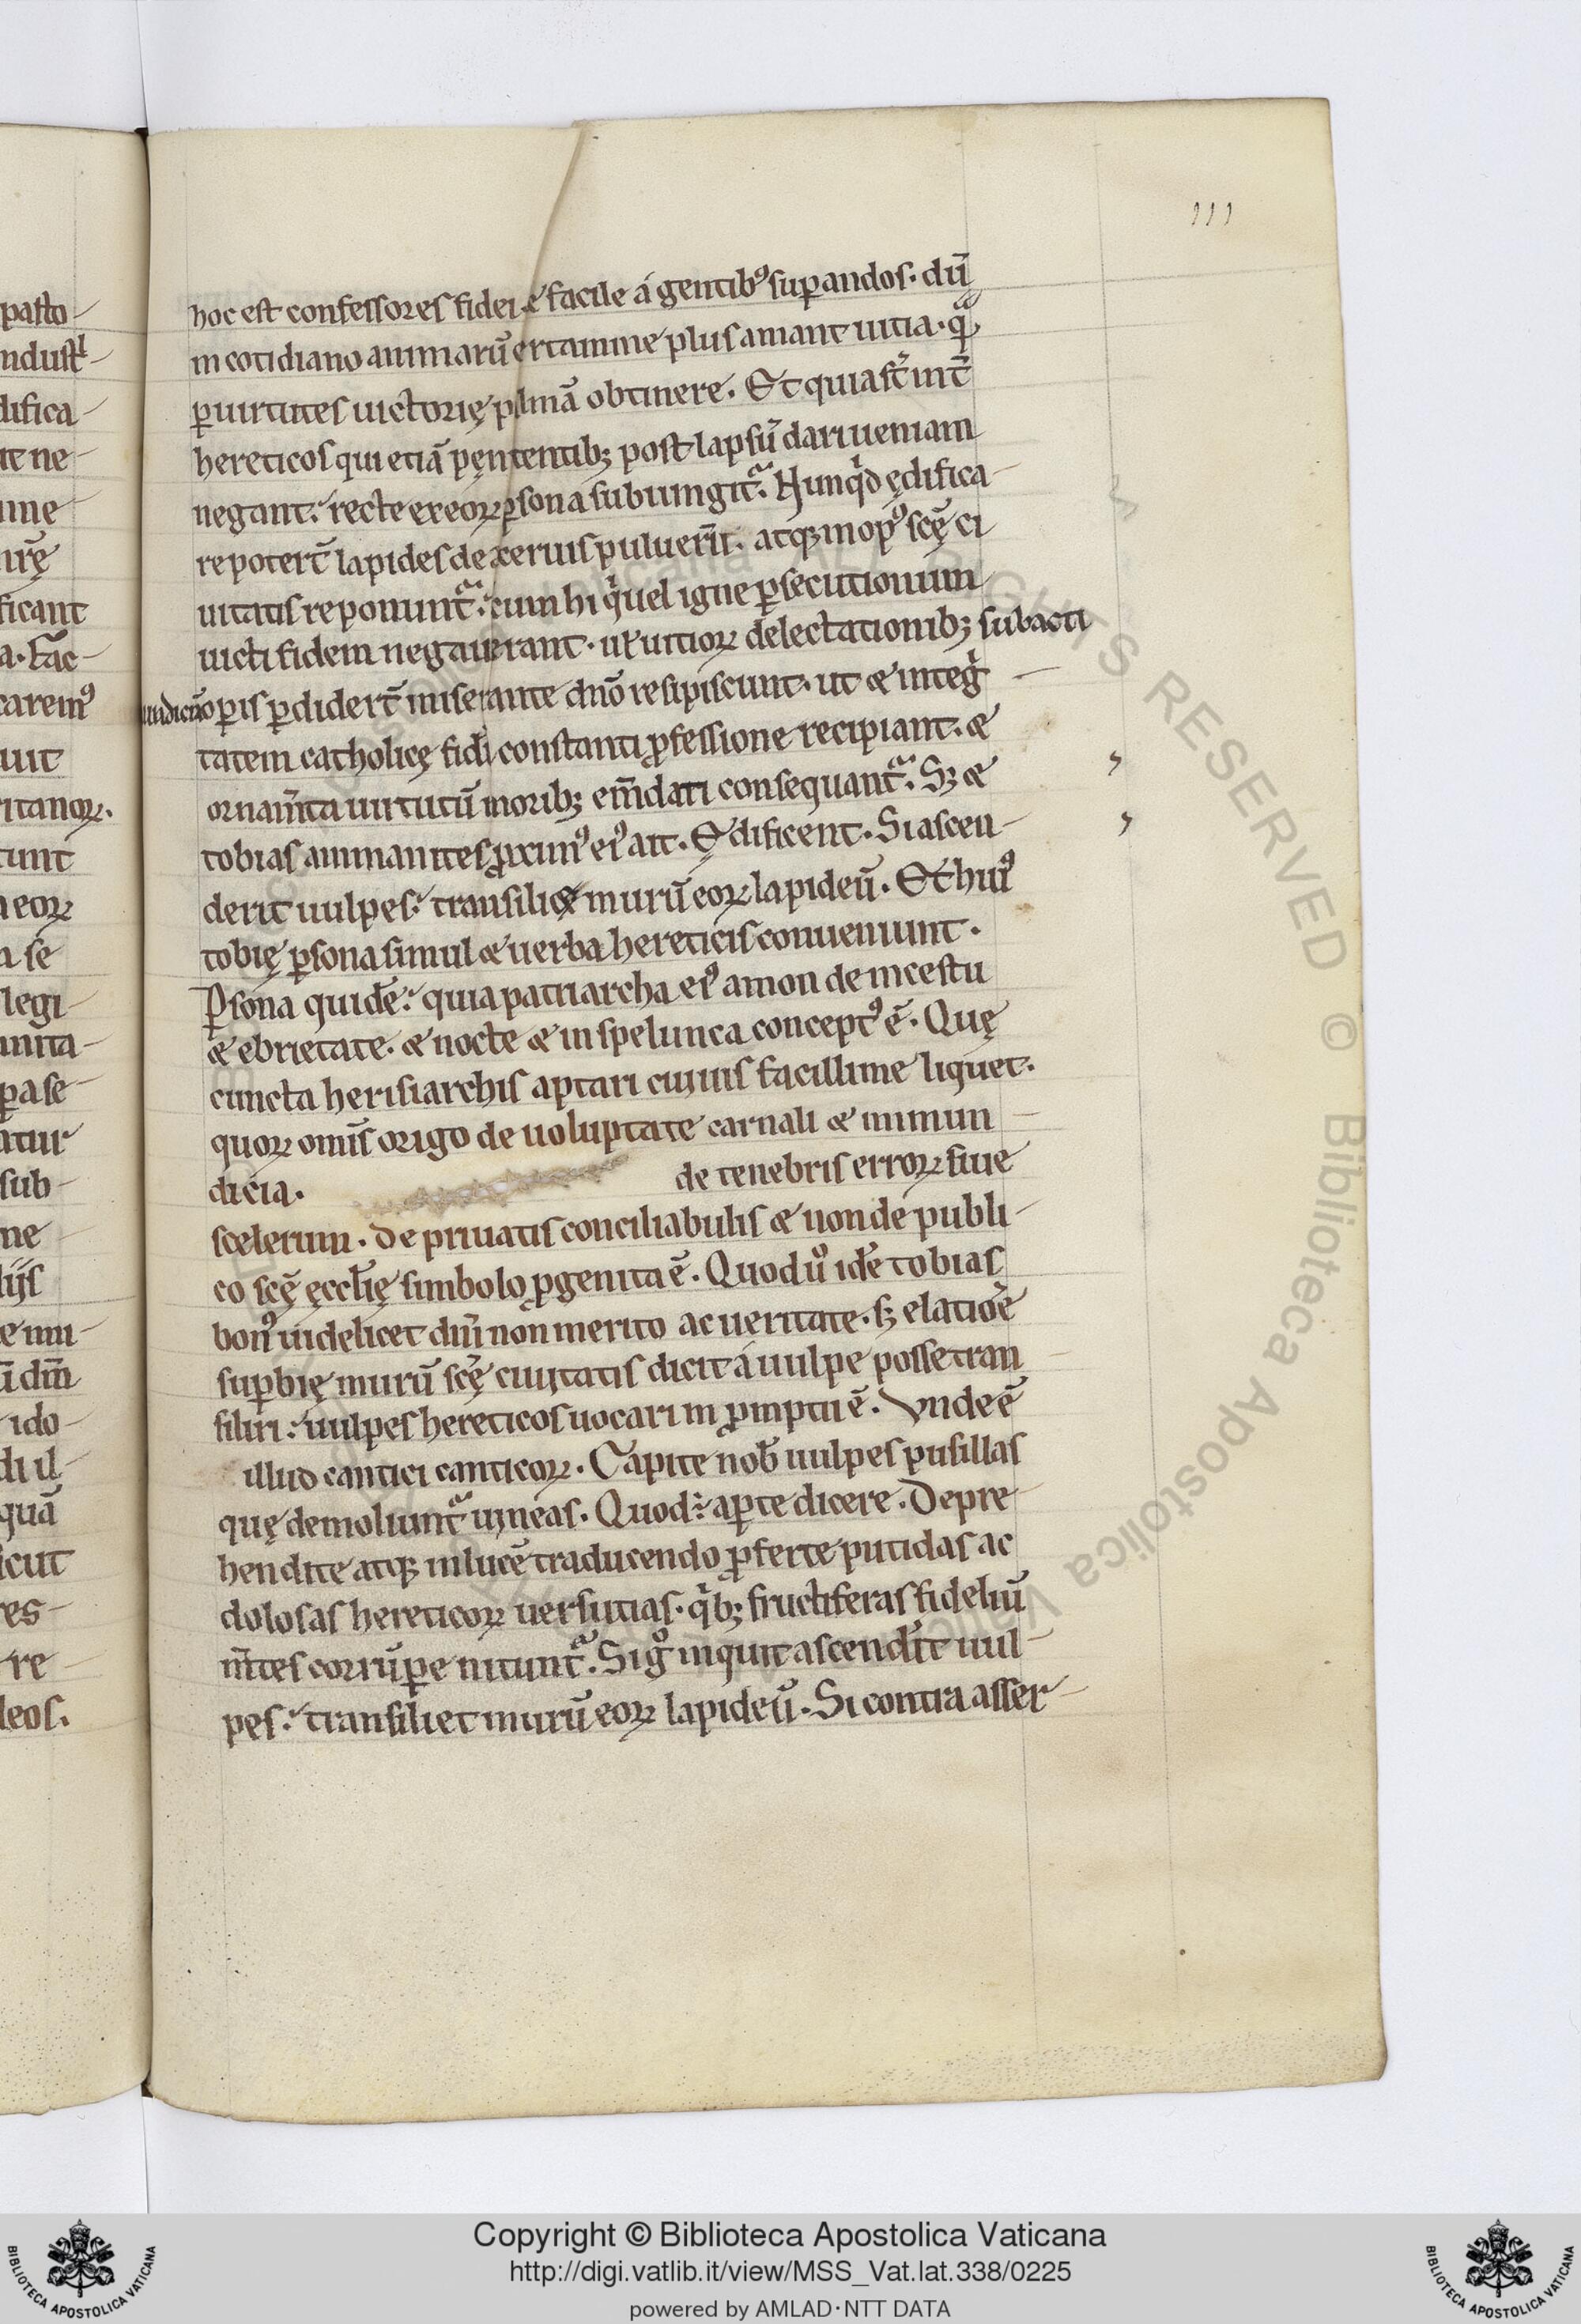 111
hoc est confessores fidei & facile á gentib⁹ suꝑandos. dū
in cotidiano animarū certamine plus amant uitia. qᷓ
ꝑ uirtutes uictorię palmā obtinere. Et quia st̄ int̄
hereticos qui etiā pęnitentibꝫ post lapsū dari ueniam
negant. recte ex eoꝝ ꝑsona subiungit᷑. Nunqͥd ędifica
re poter̄t lapides de aceruis pulueris. atqꝫ in op⁹ scę̄ ci
uitatis reponunt᷑. cum hi qͥ uel igne ꝑsecutionum
uicti fidem negauerant. ut uitioꝝ delectationibꝫ subacti
opis ꝑdider̄t miserante dn̄o resipiscunt. ut & integͥ
tatem catholicę fidei constanti ꝓfessione recipiant. &
ornam̄ta uirtutū moribꝫ em̄dati consequant᷑. Sꝫ &
tobias ammanites ꝓxim⁹ ei⁹ ait. Ędificent. Si ascen
derit uulpes. transili& murū eoꝝ lapideū. Et hui⁹
tobię ꝑsona simul & uerba hereticis conueniunt.
Ꝑsona quidē. quia patriarcha ei⁹ amon de incestu
& ebrietate. & nocte & in spelunca concept⁹ ē. Quę
cuncta herisiarchis aptari cuiuis facillime liquet.
quoꝝ omīs origo de uoluptate carnali & inmun
dicia. de tenebris erroꝝ siue
scelerum. de priuatis conciliabulis & non de publi
co scę̄ ęccl̄ię simbolo ꝓgenita ē. Quod uͦ idē tobias
bon⁹ uidelicet dn̄i non merito ac ueritate. sꝫ elatiōe
suꝑbię murū scę̄ ciuitatis dicit á uulpe posse tran
siliri. uulpes hereticos uocari in ꝓmptu ē. Vnde ē
illud cantici canticoꝝ. Capite nob̄ uulpes pusillas
quę demoliunt᷑ uineas. Quod ÷ aꝑte dicere. Depre
hendite atqꝫ in lucē traducendo ꝓferte putidas ac
dolosas hereticoꝝ uersutias. qͥbꝫ fructiferas fideliū
m̄tes corrūꝑe nitunt᷑. Si gͦ inquit ascender̄it uul
pes. transiliet murū eoꝝ lapideū. Si contra asser
pasto
ndustͥ
difica
it ne
ficant
a. Fac
carem⁹
uit
ritanoꝝ.
tunt
a eoꝝ
a se
legi
unita
ꝑ ase
atur
sub
ne
lijs
e mu
ido
di il
quā
icut
res
re
leos.
RIGHTS RESERVED © Biblioteca Apostolica Vaticana
Copyright © Biblioteca Apostolica Vaticana
http://digi.vatlib.it/view/MSS_Vat.lat.338/0225
powered by AMLAD·NTT DATA
BIBLIOTECA APOSTOLICA VATICANA
BIBLIOTECA APOSTOLICA VATICANA